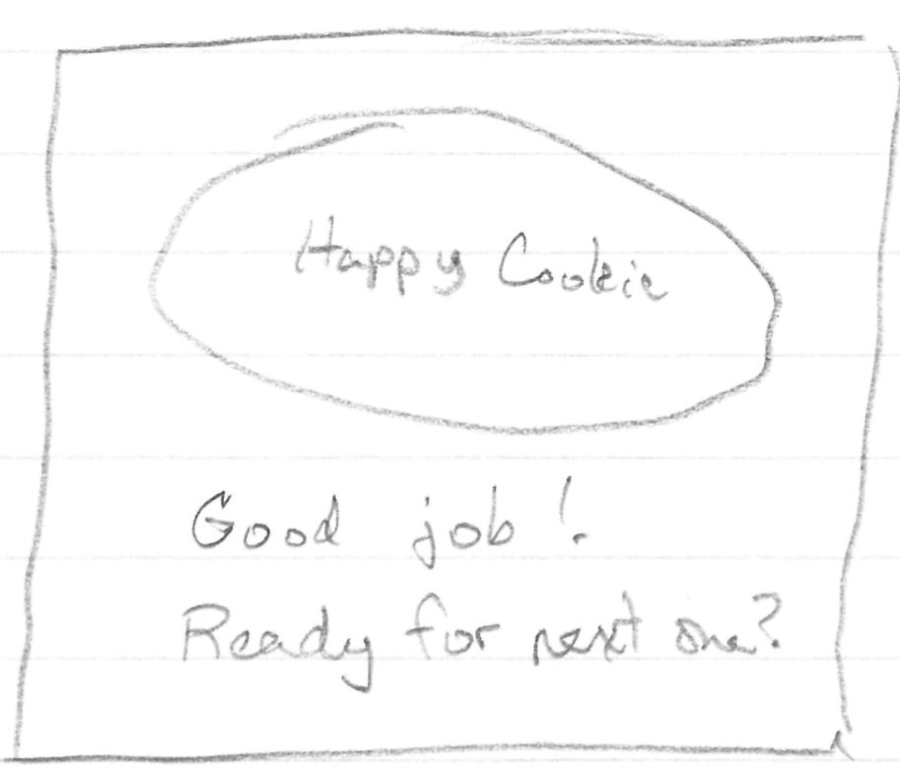 Happy Cookie
Good job!
Ready for next one?